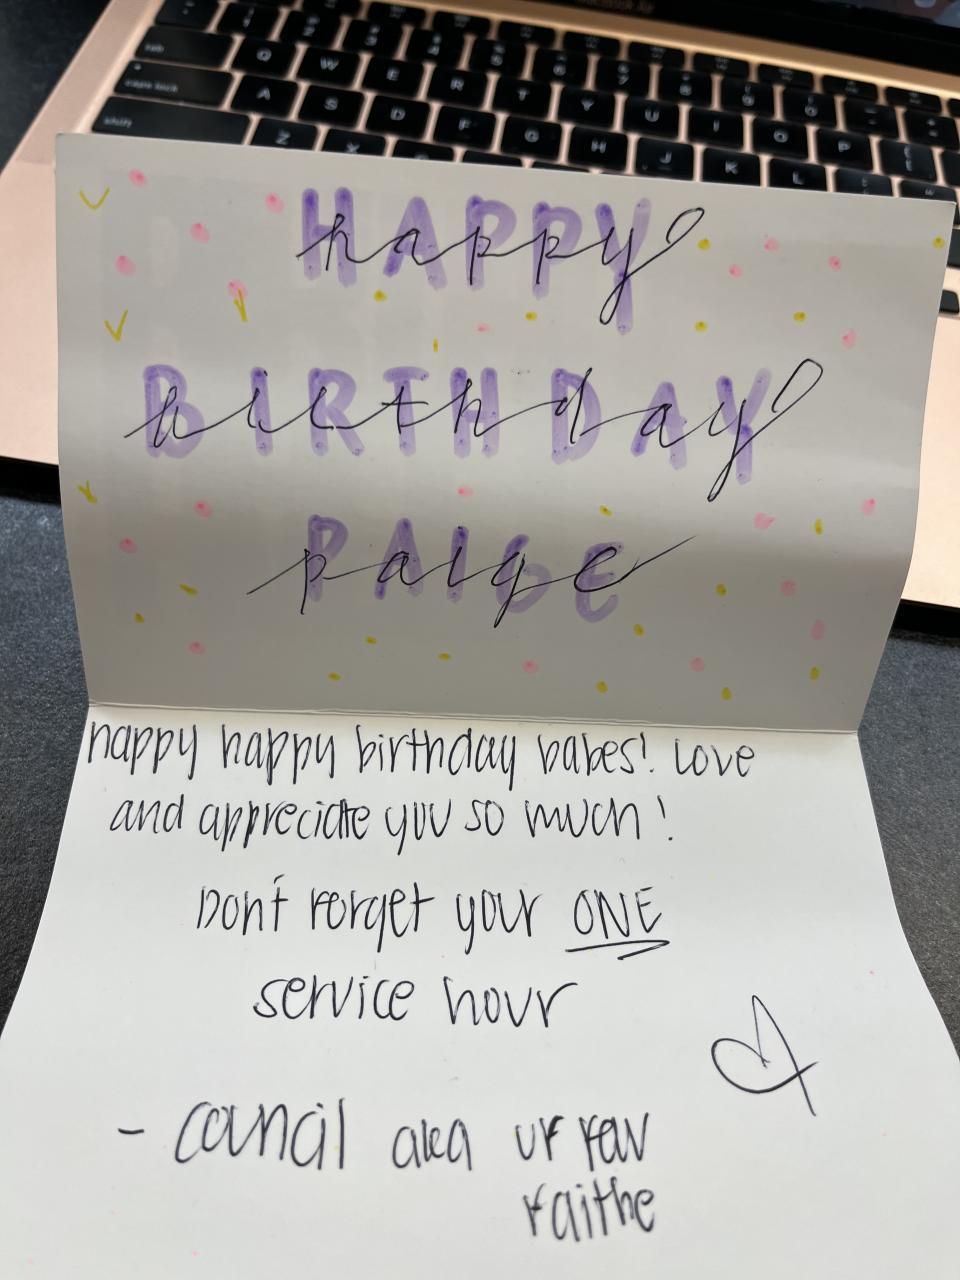 MacBook Air
tab
Q W E R T Y U I O P
caps lock
A S D F G H J K L
shift
Z X
HAPPY
happy
BIRTHDAY
birthday
PAIGE
paige
happy happy birthday babes! Love
and appreciate you so much!
Don't forget your ONE
service hour
- Council aka ur fav
Faithe